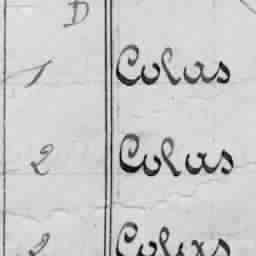 D
1 Colas
2 Colas
2 Colas